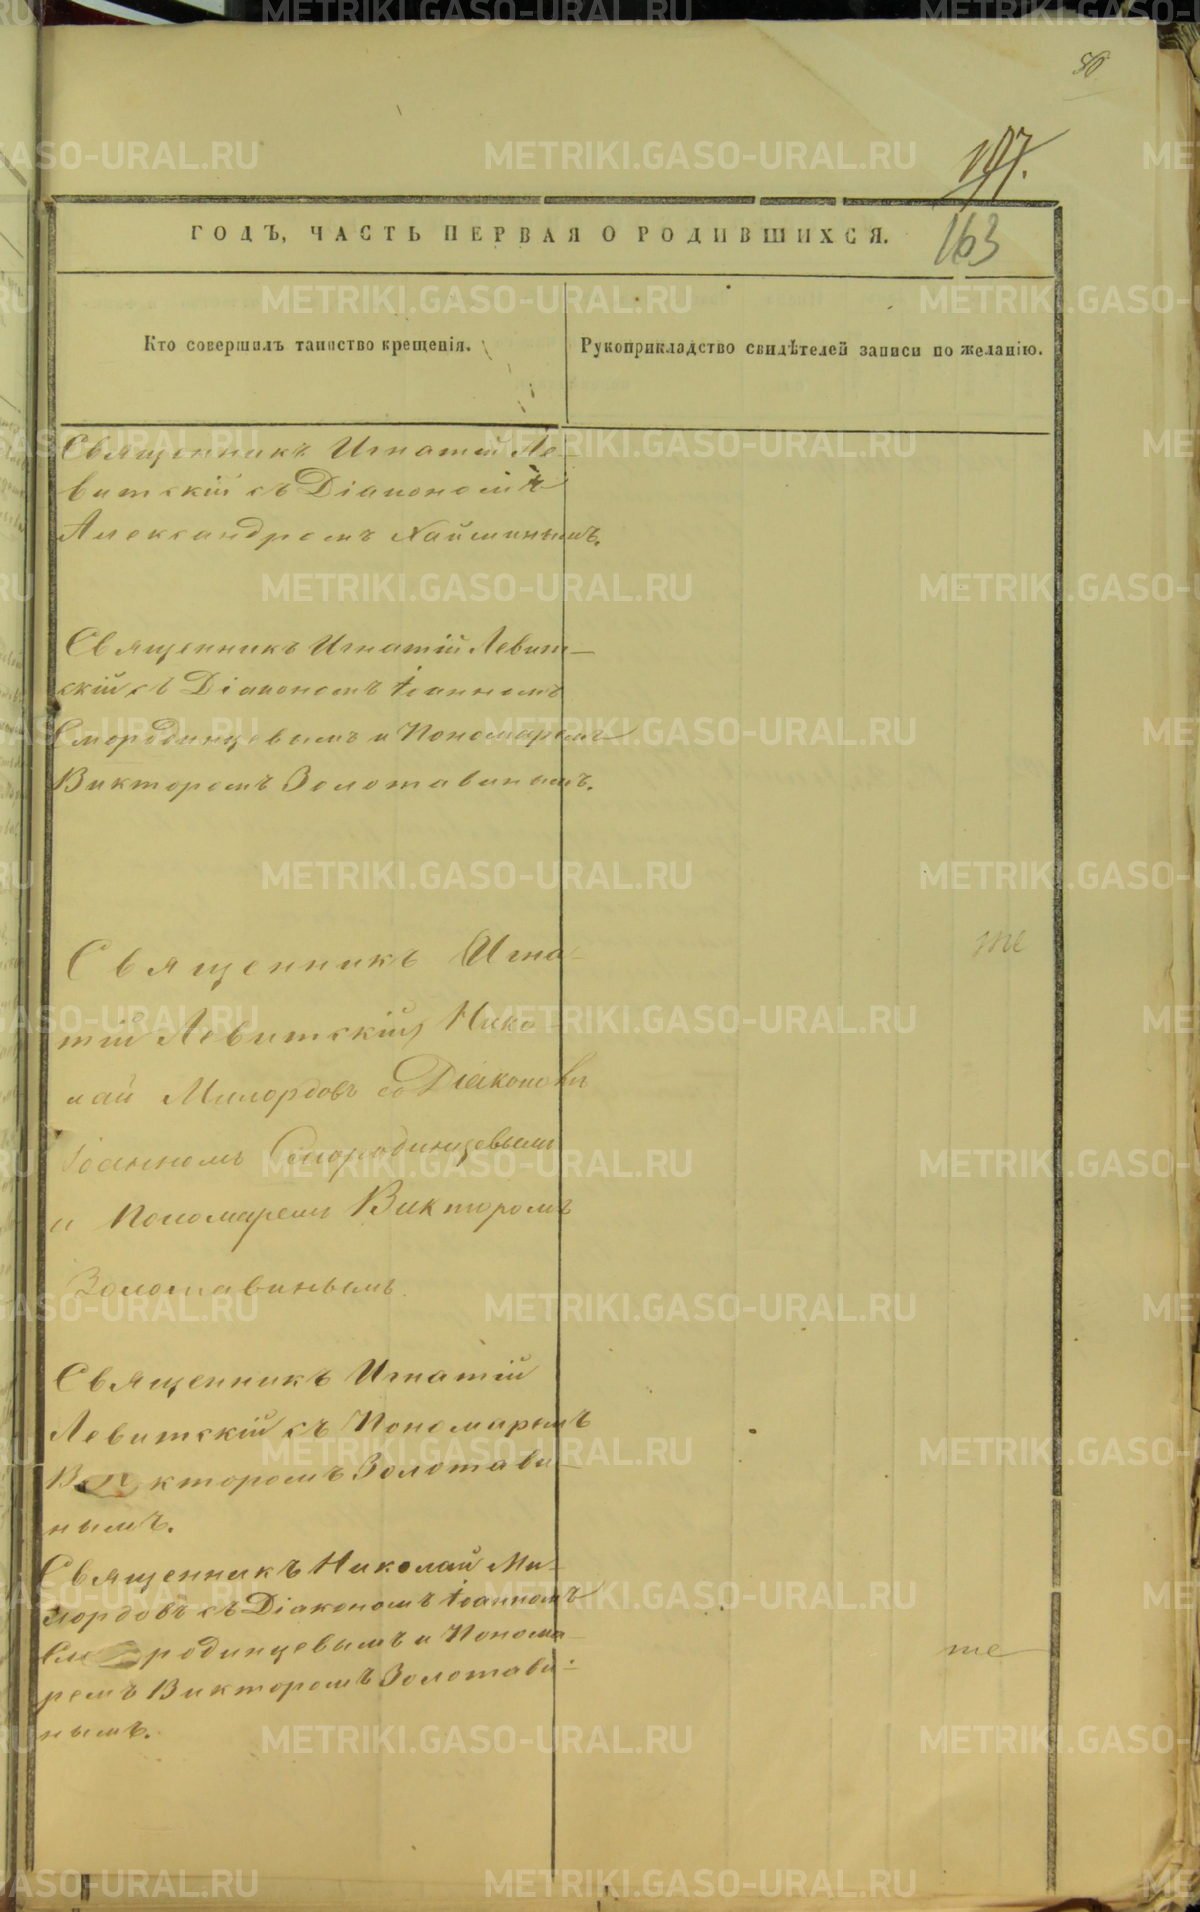 197.
163
ГОДЪ, ЧАСТЬ ПЕРВАЯ О РОДИВШИХСЯ.
Кто совершилъ таинство крещенія.
Рукоприкладство свидѣтелей записи по желанію.
Священникъ Игнатій Ле-
витскій съ Діакономъ
Александромъ Наймишнымъ.
Священникъ Игнатій Левит-
скій съ Діакономъ Іоанномъ
Смородинцевымъ и Пономаремъ
Викторомъ Золотавинымъ.
Священникъ Игна-
тій Левитскій, Нико-
лай Милордовъ со Діакономъ
Іоанномъ Смородинцевымъ
и Пономаремъ Викторомъ
Золотавинымъ.
Священникъ Игнатій
Левитскій съ Пономаремъ
Викторомъ Золотави-
нымъ.
Священникъ Николай Ми-
лордовъ съ Діакономъ Іоанномъ
Смородинцевымъ и Понома-
ремъ Викторомъ Золотави-
нымъ.
METRIKI.GASO-URAL.RU